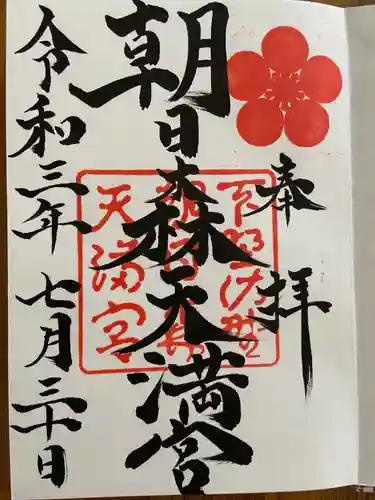 奉拝
朝日森天満宮
令和三年七月三十日
下野佐野
朝日森
天満宮